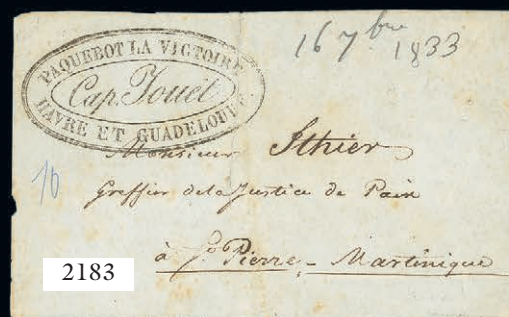 PAQUEBOT LA VICTOIRE
Cap. Jouët
HAVRE ET GUADELOUPE
16 7bre 1833
Monsieur Ithier
Greffier de la Justice de Paix
à St. Pierre - Martinique
10
2183